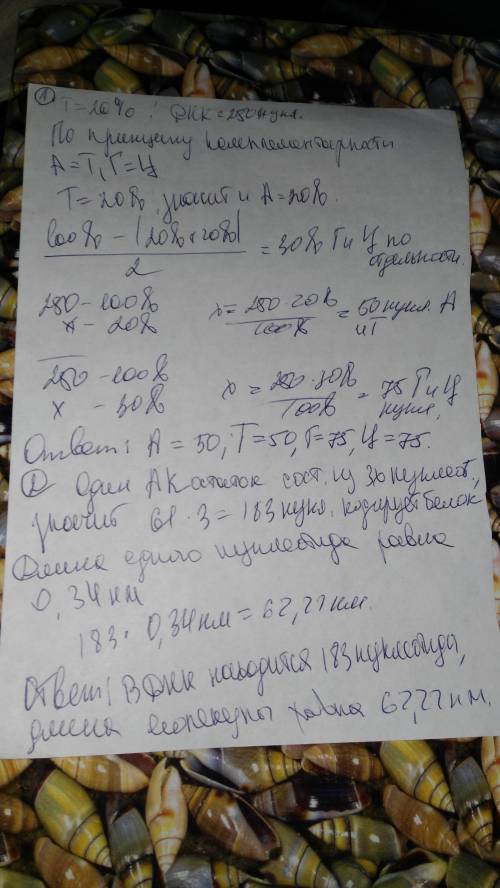 ① T=20% ; ДНК=250 нукл.
По принципу комплементарности
А=Т, Г=Ц
Т=20%, значит и А=20%.
100% – (20%+20%) / 2 = 30% Г и Ц по отдельности.
250 – 100%
х – 20%
х = 250·20% / 100% = 50 нукл. А и Т
250 – 100%
х – 30%
х = 250·30% / 100% = 75 Г и Ц нукл.
Ответ: А=50, Т=50, Г=75, Ц=75.
② Один АК остаток сост. из 3х нуклеот.,
значит 61·3=183 нукл. кодирует белок
Длина одного нуклеотида равна
0,34 нм
183·0,34 нм = 62,22 нм.
Ответ: В ДНК находится 183 нуклеотиды,
длина молекулы равна 62,22 нм.